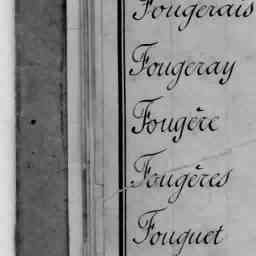 Fougerais
Fougeray
Fougère
Fougères
Fouguet